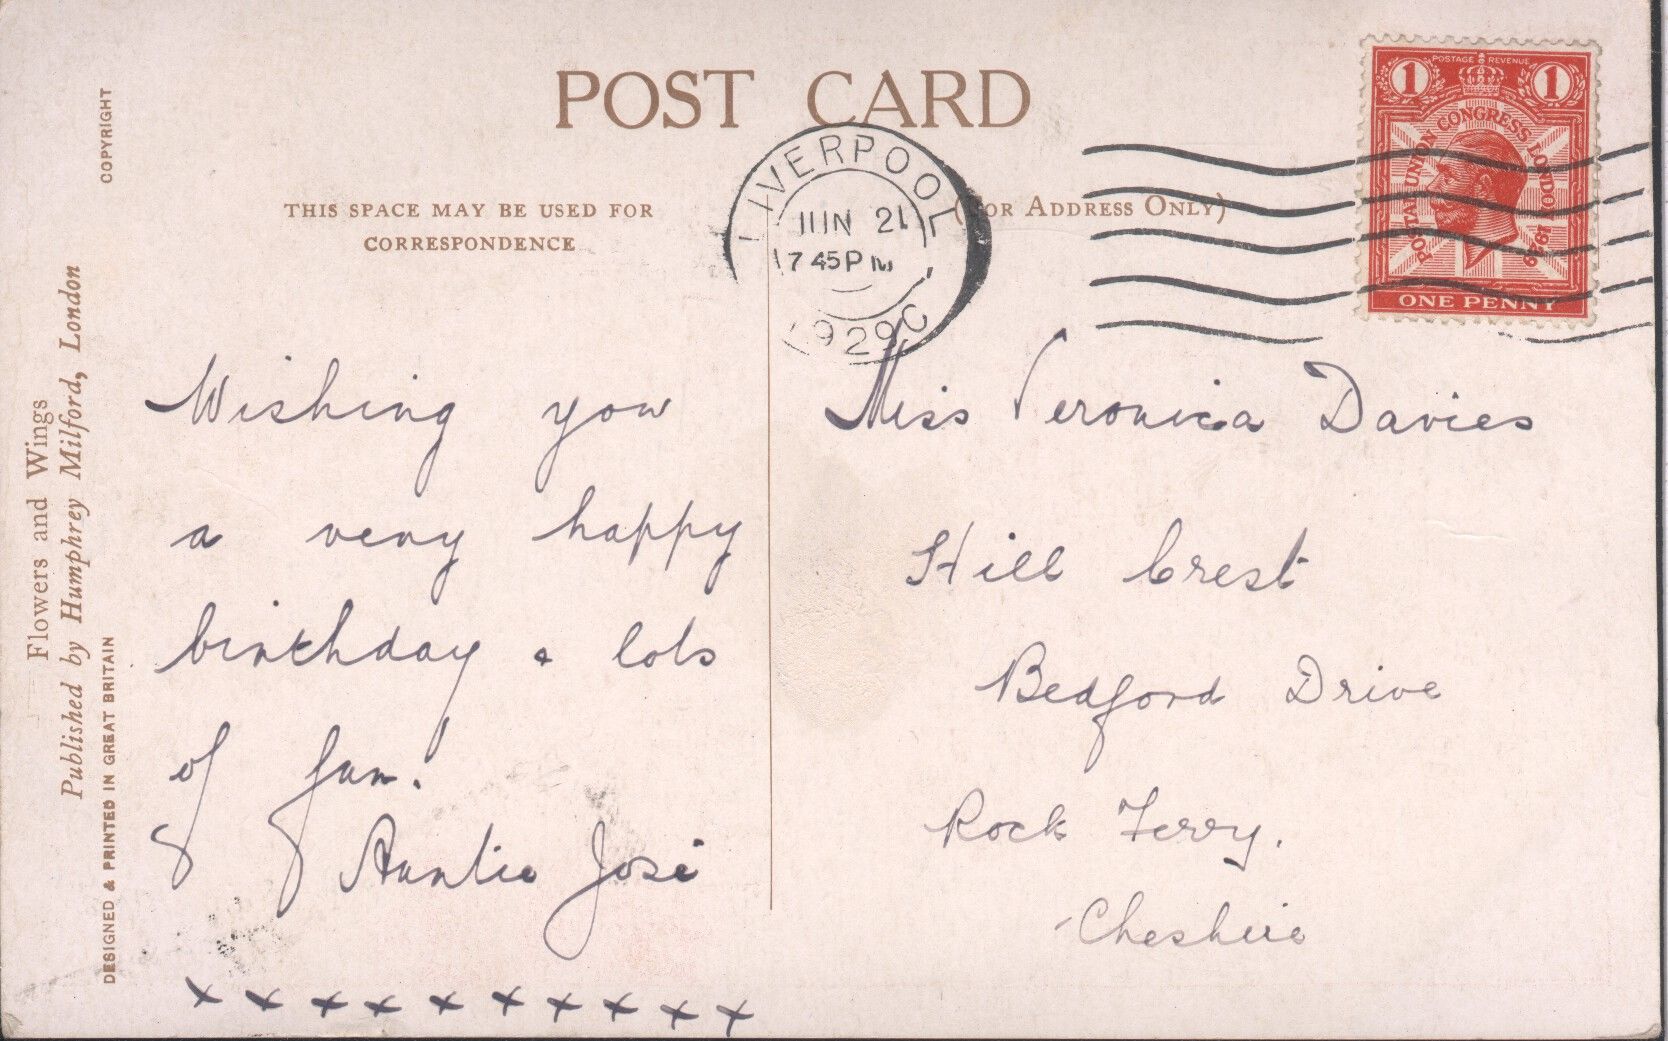 POST CARD
THIS SPACE MAY BE USED FOR
CORRESPONDENCE
(FOR ADDRESS ONLY)
LIVERPOOL
JUN 21
7 45 PM
1929 C
1 POSTAGE REVENUE 1
POSTAL UNION CONGRESS LONDON 1929
ONE PENNY
Flowers and Wings
Published by Humphrey Milford, London
DESIGNED & PRINTED IN GREAT BRITAIN
COPYRIGHT
Wishing you
a very happy
birthday & lots
of fun.
Auntie José
x x x x x x x x x x
Miss Veronica Davies
Hill Crest
Bedford Drive
Rock Ferry.
Cheshire